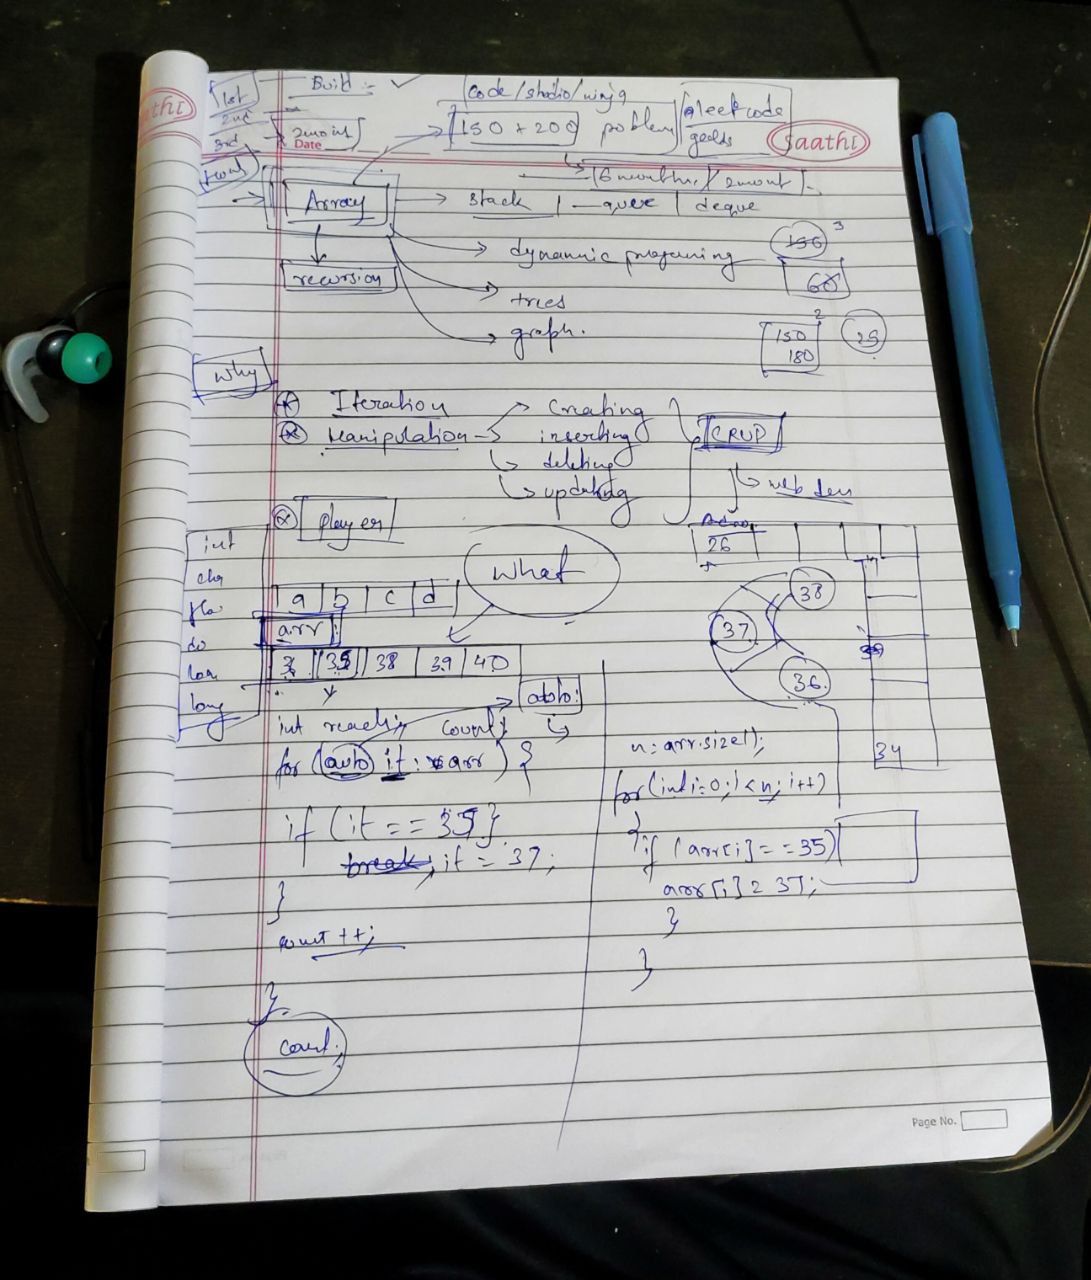 aathi
1st Build :- code/studio/ninja
2nd
3rd 2mont 150 + 200 poblem leetcode
Date geeks saathi
6 months / 2mont
Array stack | queue | deque
dynamic 150 3
recursion 60
trees
graph. 150 2 25
180
Why
Iteration creating
Manipulation inserting CRUD
deleting
updating web dev
player
int 26
cha What
flo a b c d 38
do arr 37
lon 35 38 39 40 36
long auto:
int count; n = arr.size();
for (auto it : arr) { 34
for(int i=0; i<n; i++)
if (it == 35} {
break; it = 37; if (arr[i] == 35)
arr[i] = 37;
} }
count ++;
}
}
count;
Page No.